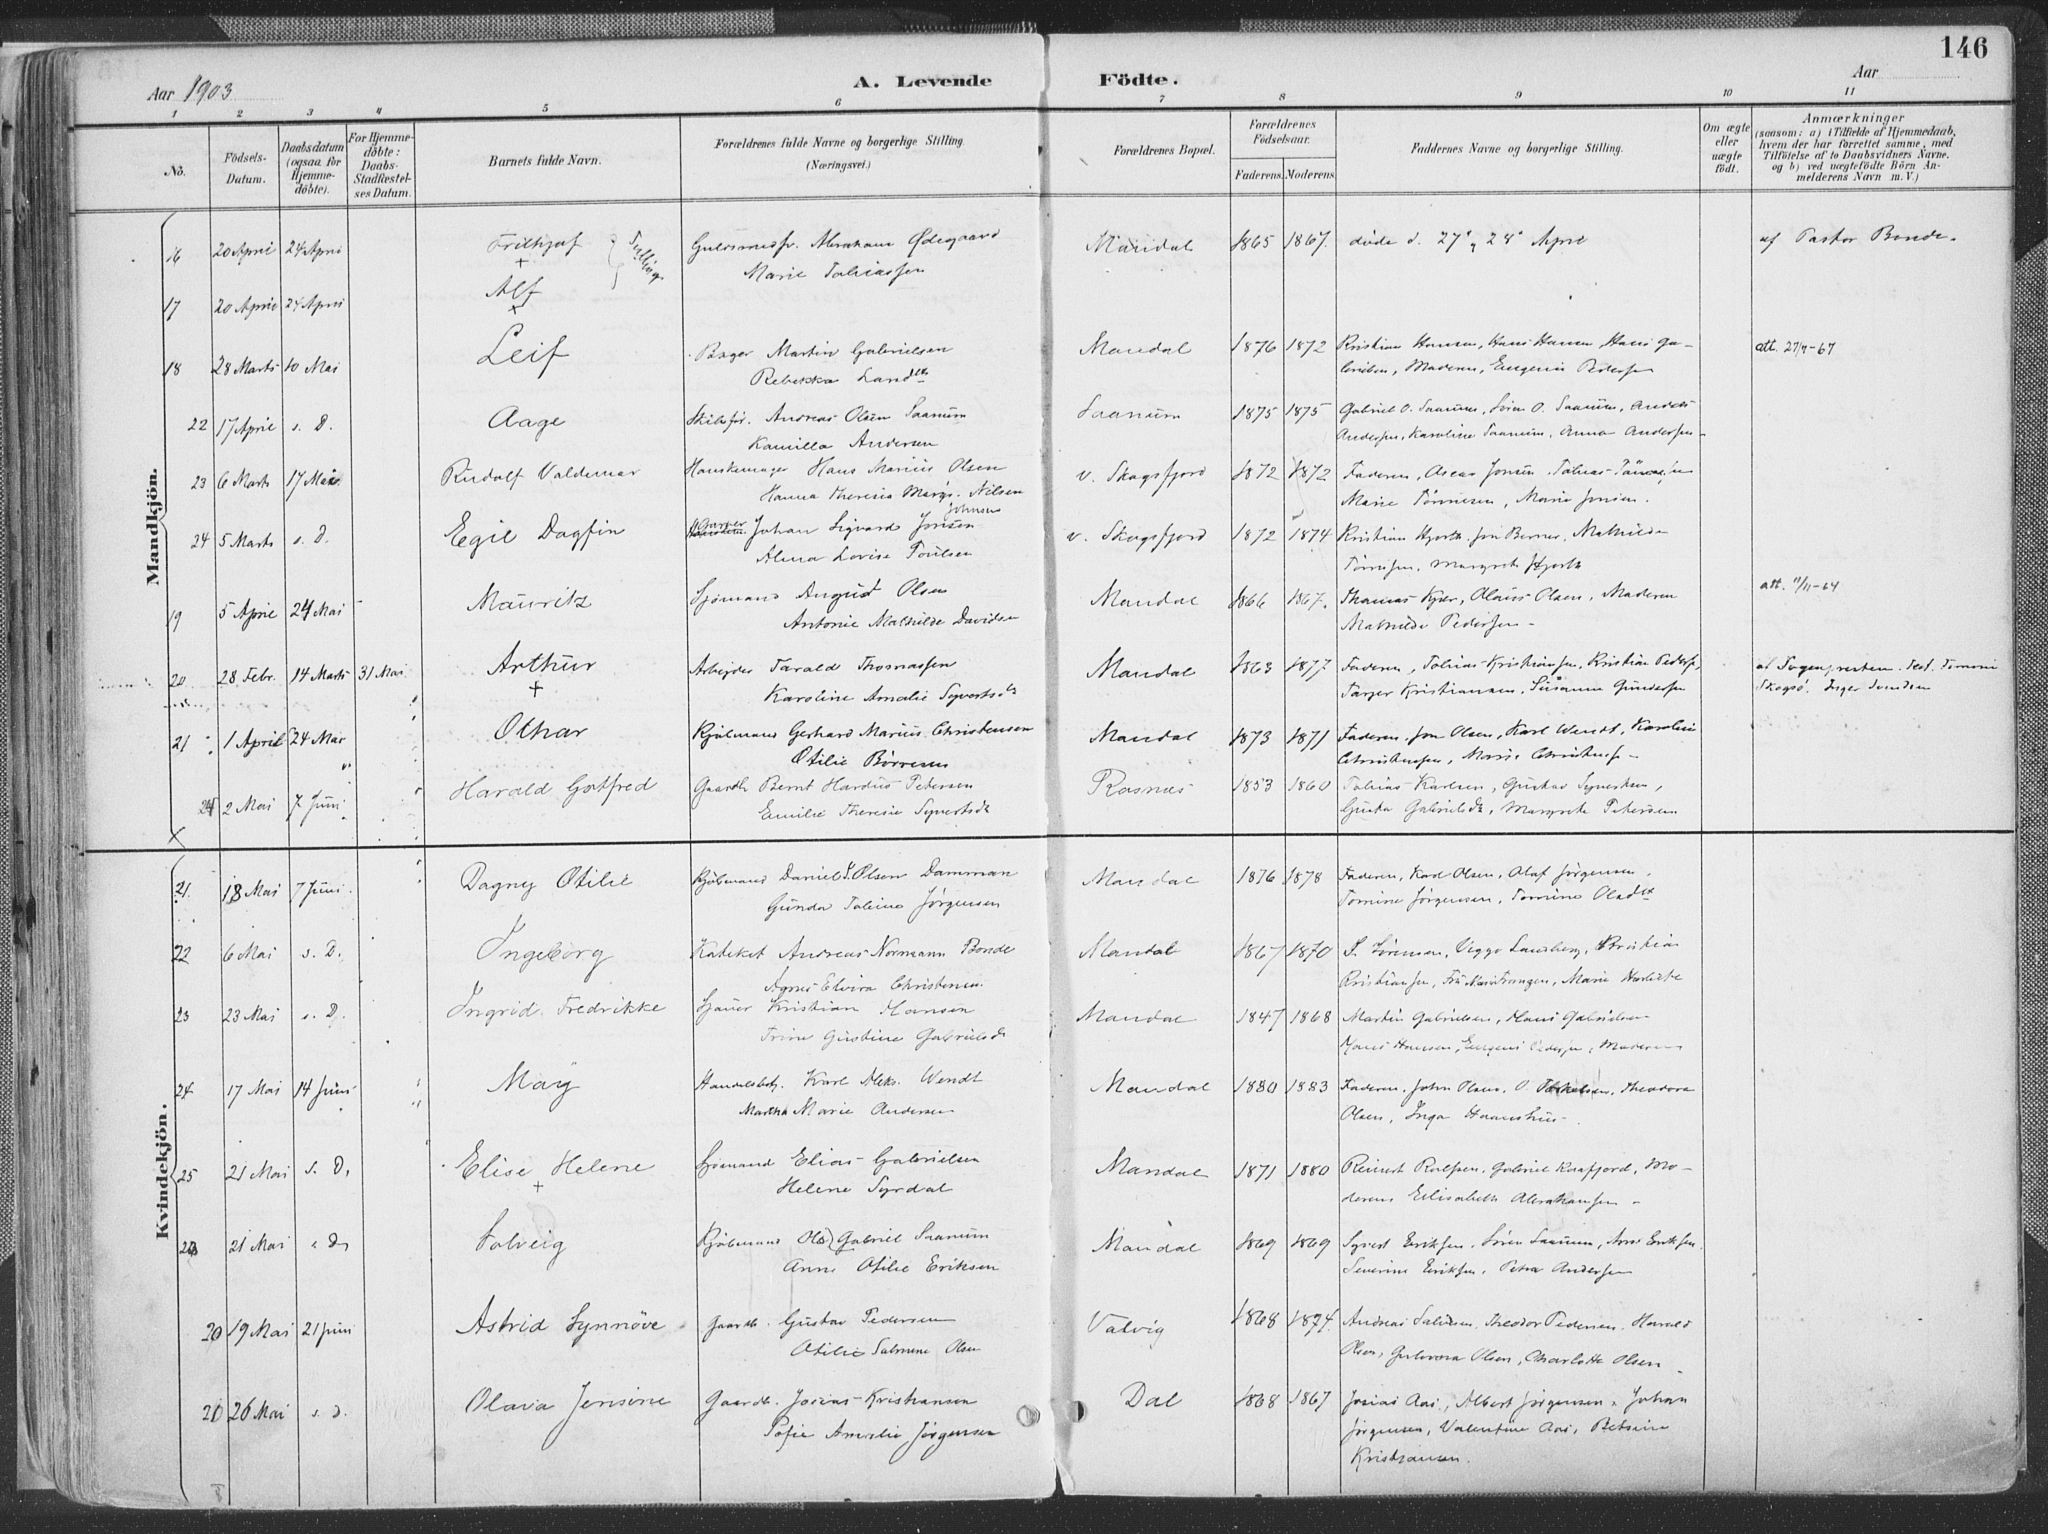 146
Aar 1903
A. Levende Födte.
Aar
1 2 3 4 5 6 7 8 9 10 11
No.
Födsels-Datum.
Daabsdatum (ogsaa for Hjemmedöbte).
For Hjemmedöbte: Daabs-Stadfæstelses Datum.
Barnets fulde Navn.
Forældrenes fulde Navne og borgerlige Stilling (Næringsvei.)
Forældrenes Bopæl.
Forældrenes Födselsaar.
Faderens. Moderens.
Faddernes Navne og borgerlige Stilling.
Om ægte eller uægte födt.
Anmærkninger
(saasom: a) i Tilfælde af Hjemmedaab, hvem der har forrettet samme, med Tilföielse af to Daabsvidners Navne, og b) ved uægtefödte Börn Anmelderens Navn m. V.)
Mandkjön.
16 20 April 24 April Frithjof + Tvilling Guldsmedsv. Abraham Ødegaard Mandal 1865 1867. døde d. 27 & 28 April af Pastor Bonde.
Marie Tobiassen
17 20 April 24 April Alf +
18 28 Marts 10 Mai Leif Bager Martin Gabrielsen Mandal 1876 1872 Kristian Hansen, Hans Hansen, Hans Ga- att. 27/7-67
Rebekka Land brielsen, Moderen, Eugenie Pedersen
22 17 April s. D. Aage Andreas Olsen Saanum Saanum 1875 1875 Gabriel O. Saanum, Søren O. Saanum, Anders
Kamilla Andersen Andersen, Karoline Saanum, Anna Andersen
23 6 Marts 17 Mai Rudolf Valdemar Hanskemager Hans Marius Olsen v. Skogsfjord 1872 1872 Faderen, Oscar Jonsen, Tobias
Hanna Theresia Nilsen Marie Tönnesen, Marie Jensen.
24 5 Marts s. D. Egil Dagfin Garver Johan Sigvard Jonsen Johnsen v. Skogsfjord 1872 1874 Kristian Hjorth, Jon Berner, Mathilde
Alma Lovise Poulsen Tönnesen, Margrete Hjorth
19 5 April 24 Mai Mauritz Sjömand August Olsen Mandal 1866 1867. Thomas Kjær, Olaus Olsen, Moderen att. 11/11-64
Antonie Mathilde Davidsen Mathilde Pedersen
20 28 Febr. 14 Marts 31 Mai Arthur + Arbejder Tarald Thomassen Mandal 1863 1877 Faderen, Tobias Kristiansen, Kristian Peders. af Sognepresten. Test. Tomine
Karoline Amalie Syvertsd Tarjer Kristiansen, Susanne Gundersen Skogsö. Inger Svendsen
21 1 April 24 Mai Othar Kjöbmand Gerhard Marius Christensen Mandal 1873 1871 Faderen, Jon Olsen, Karl Wendt, Karoline
Otilie Börresen Christensen, Marie Christensen
24 2 Mai 7 Juni Harald Gotfred Gaardb. Bernt Hardus Petersen Rosnæs 1853 1860 Tobias Karlsen, Gustav Syvertsen,
Emilie Theresie Syvertsdt Gusta Gabrielsdt, Margrete Petersen
Kvindekjön.
21. 18 Mai 7 Juni. Dagny Otilie Kjöbmand Daniel Olsen Damman Mandal 1876 1878 Faderen, Karl Olsen, Olaf Jörgensen,
Gunda Tobine Jörgensen Tomine Jörgensen, Tomine Olsdtr
22 6 Mai s. D. Ingeborg Kateket Andreas Normann Bonde Mandal 1867 1870 S. Sørensen, Viggo Lansberg, Kristian
Agnes Elvira Christensen. Kristiansen, Marie
23 23 Mai s. D. Ingrid Fredrikke Sjauer Kristian Hansen Mandal 1847 1868 Martin Gabrielsen, Hans Gabrielsen
Trine Gustine Gabrielsd Hans Hansen, Eugenie Pedersen, Moderen
24 17 Mai 14 Juni May Handelsbetj. Karl Aleks. Wendt Mandal 1880 1883 Faderen, John Olsen, O. Theodora
Martha Marie Andersen Olsen, Inga Haanshus.
25 21 Mai s. D. Elise Helene + Sjömand Elias Gabrielsen Mandal 1871 1880 Reinert Rolfsen, Gabriel Knafjord, Mo-
Helene Syrdal deren Elisabeth Abrahamsen
21 Mai s D. Solveig Kjöbmand Ole Gabriel Saanum Mandal 1869 1869 Syvert Eriksen, Sören Saanum, Eriksen,
Anne Otilie Eriksen Severine Eriksen, Petra Andersen
20 19 Mai 21 Juni Astrid Synnöve Gaardb. Gustav Pedersen Valvig 1868 1874 Andreas Salvesen, Theodor Pedersen, Harald
Otilie Salmine Olsen Olsen, Gulovara Olsen, Charlotte Olsen
21 26 Mai s. D. Olava Jensine Gaardb. Josias Kristiansen Dal 1868 1867 Josias Aas, Albert Jörgensen, Johan
Sofie Amalie Jörgensen Jörgensen, Valentine Aas, Betsine
Kristiansen.